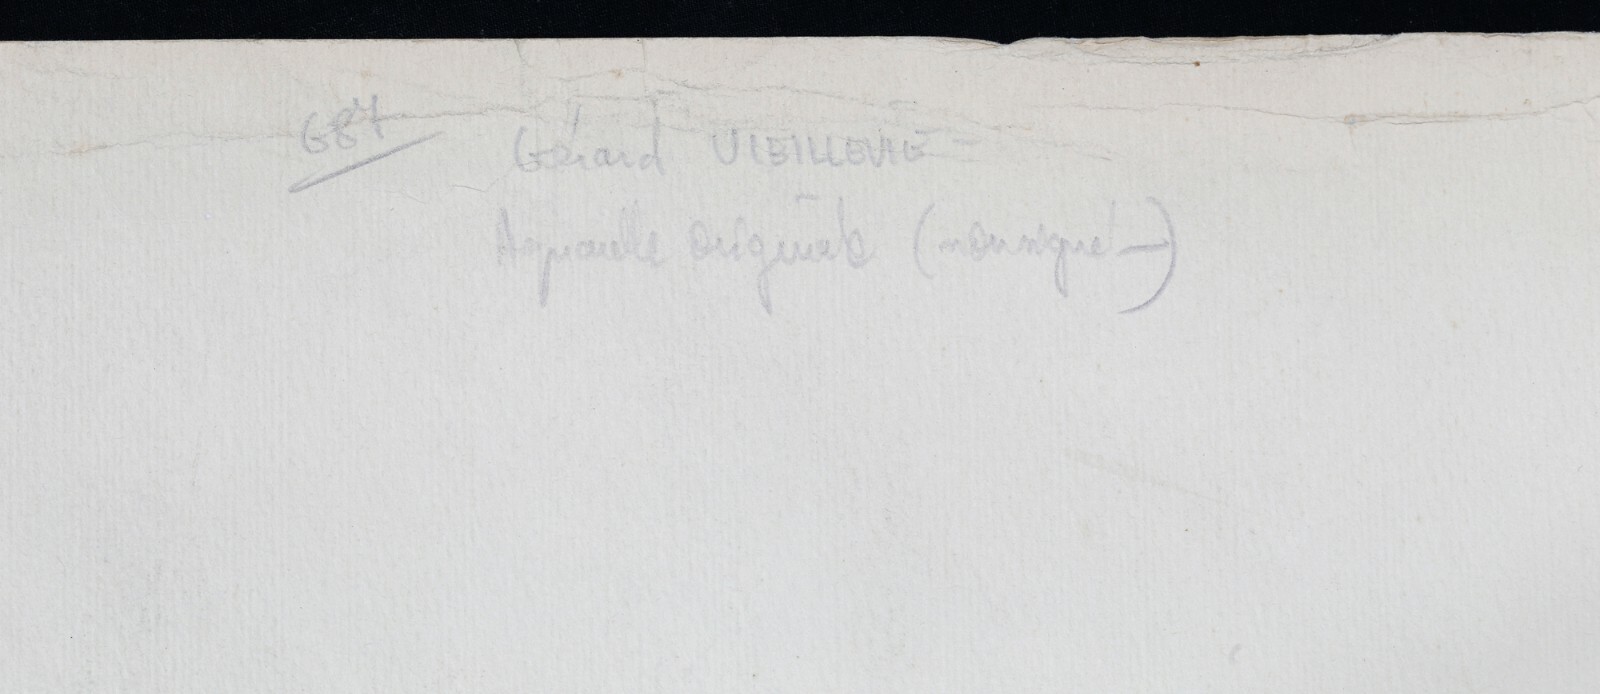 687 Gérard VIEILLEVIE -
Aquarelle originale (non signé -)